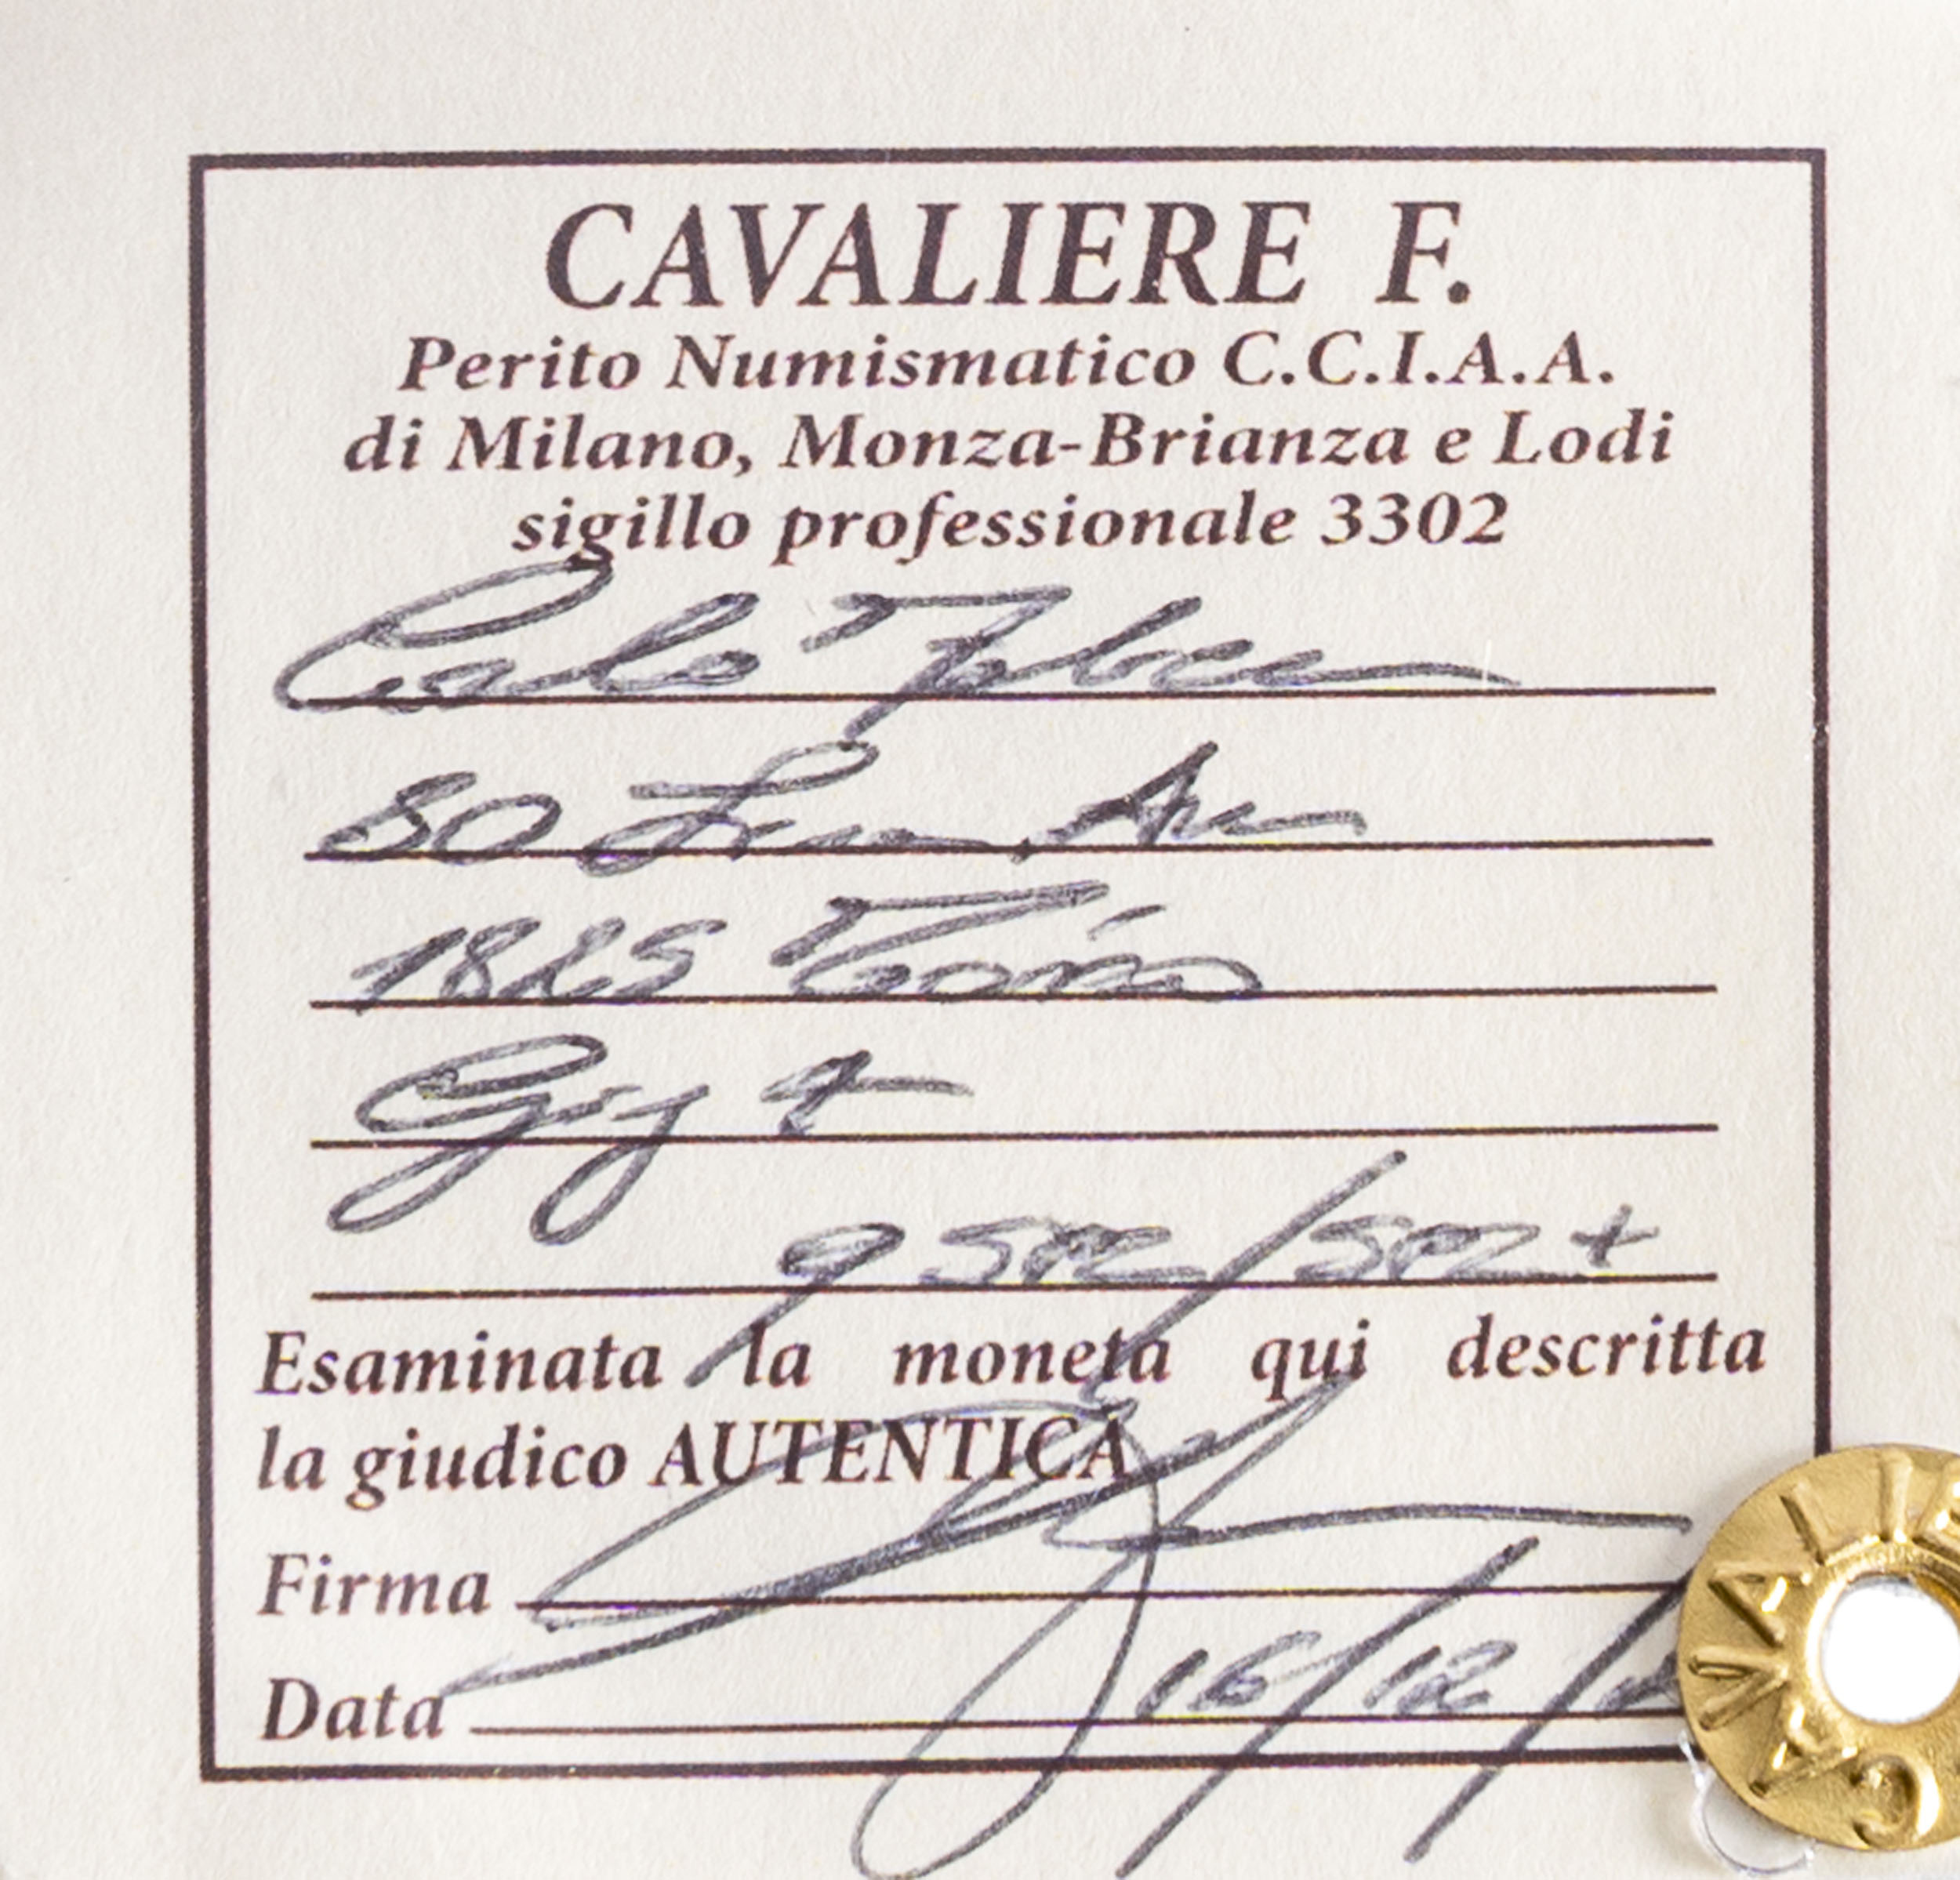 CAVALIERE F.
Perito Numismatico C.C.I.A.A.
di Milano, Monza-Brianza e Lodi
sigillo professionale 3302
Carlo Felice
80 Lire
1825 Torino
Gig
q SPL/SPL+
Esaminata la moneta qui descritta
la giudico AUTENTICA
Firma
Data 16/12/
CAVALIE